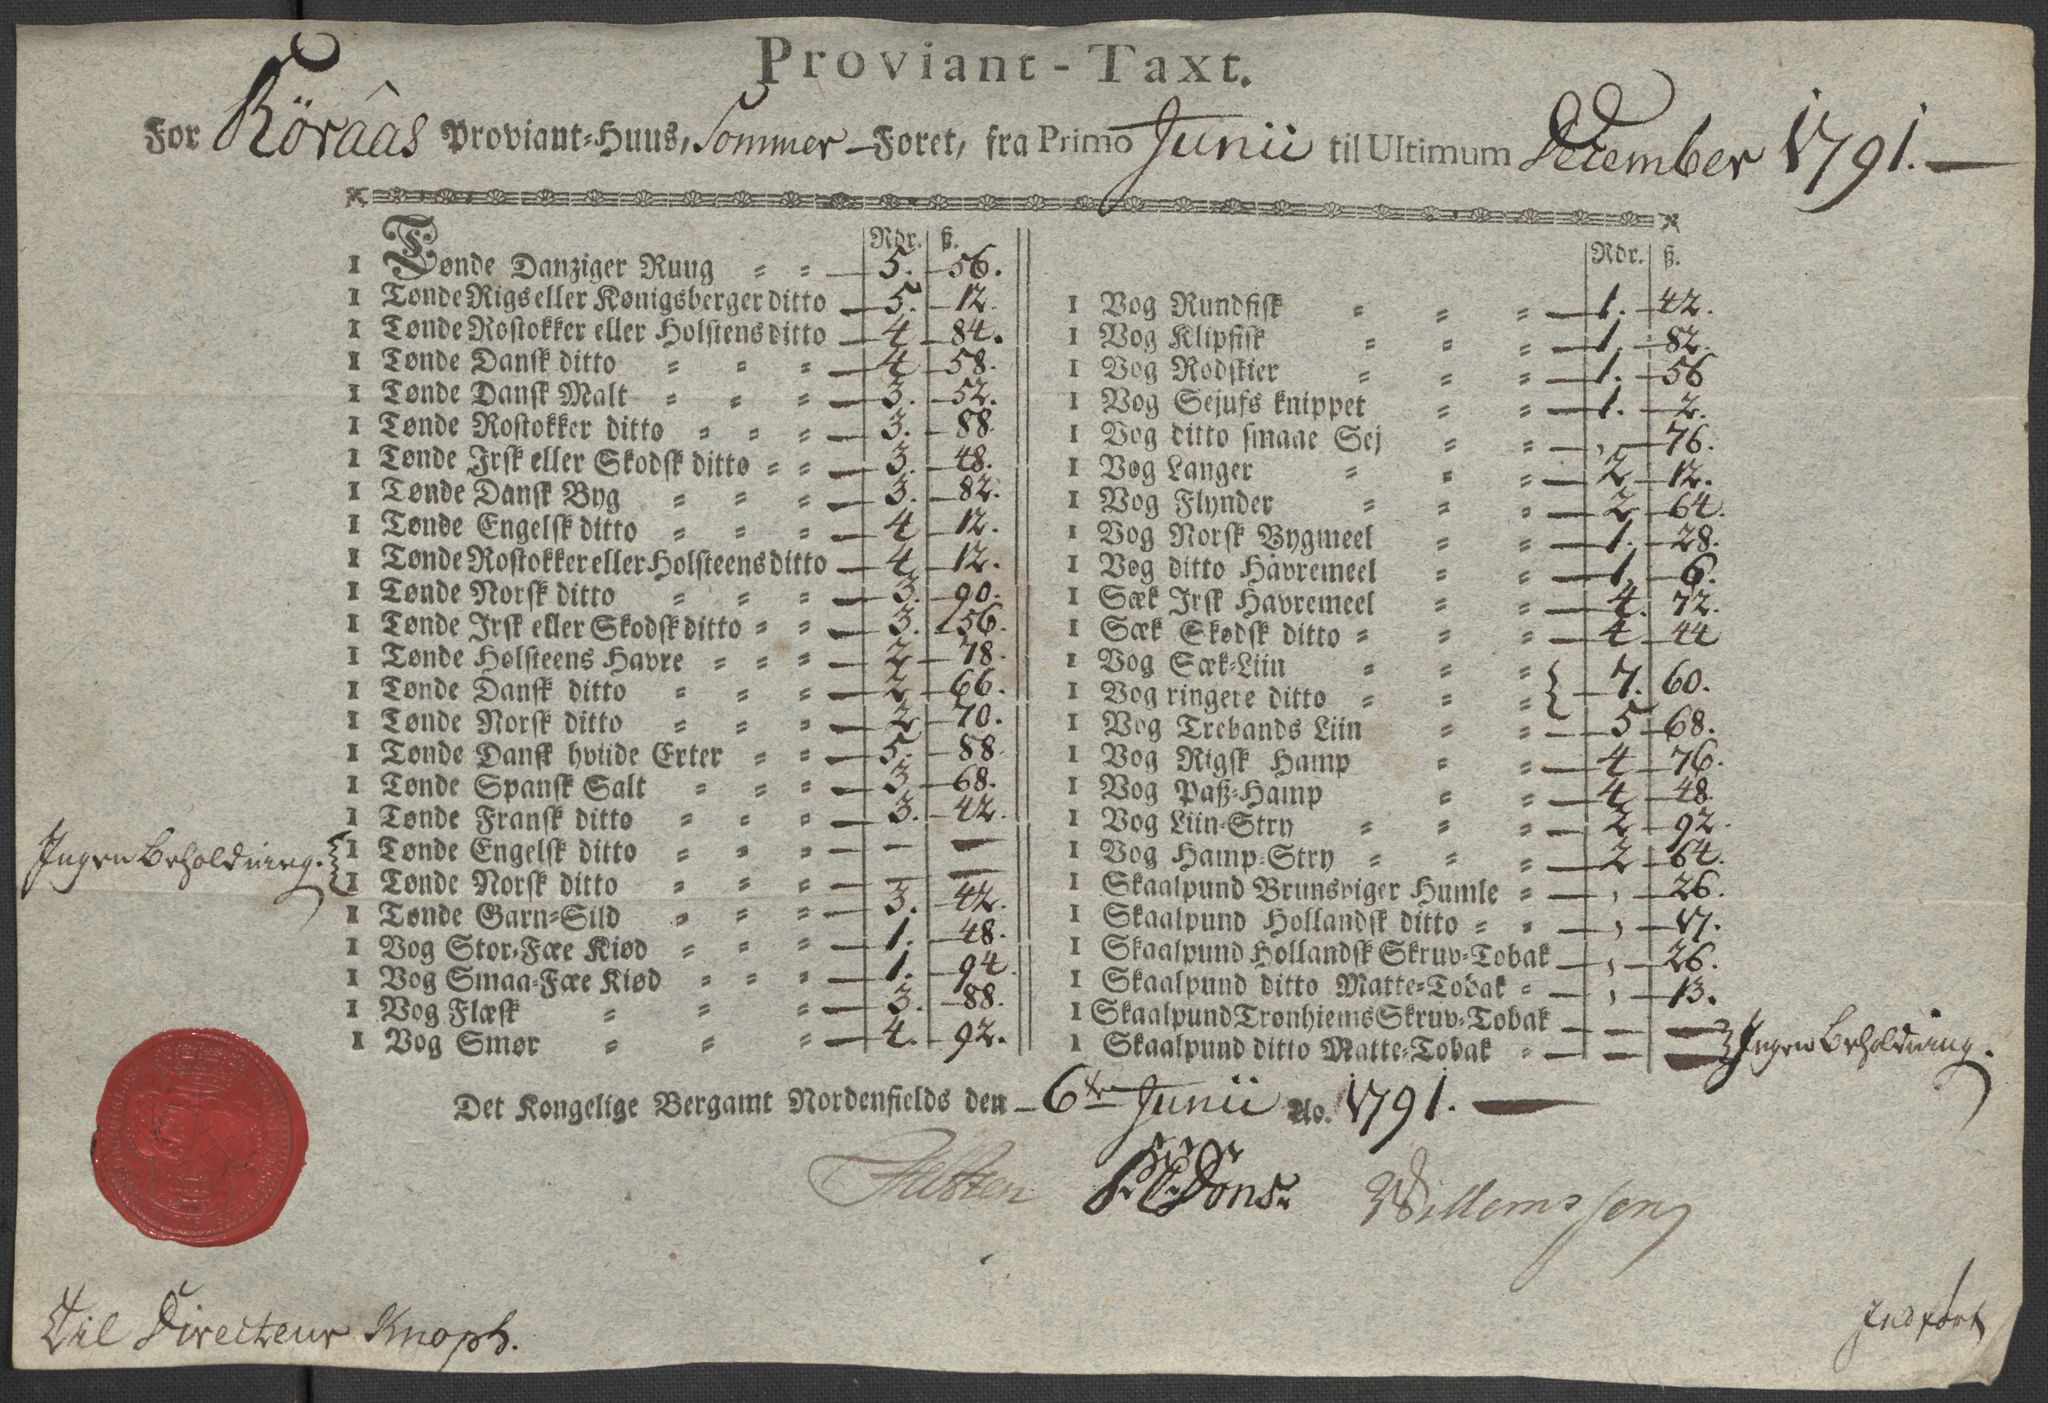 Proviant-Taxt.
For Röraas Proviant-Huus, Sommer-Føret, fra Primo Junii til Ultimum December 1791.
Rdr. ß.
1 Tønde Danziger Ruug 5. 56.
1 Tønde Rigs eller Kønigsberger ditto 5. 12
1 Tønde Rostokker eller Holstens ditto 4 84.
1 Tønde Dansk ditto 4 58.
1 Tønde Dansk Malt 3. 52.
1 Tønde Rostokker ditto 3. 88.
1 Tønde Irsk eller Skodsk ditto 3. 48.
1 Tønde Dansk Byg 3. 82.
1 Tønde Engelsk ditto 4 12.
1 Tønde Rostokker eller Holsteens ditto 4. 12.
1 Tønde Norsk ditto 3. 90.
1 Tønde Irsk eller Skodsk ditto 3. 56.
1 Tønde Holsteens Havre 2 78.
1 Tønde Dansk ditto 2 66.
1 Tønde Norsk ditto 2 70.
1 Tønde Dansk hviide Erter 5. 88
1 Tønde Spansk Salt 3 68.
1 Tønde Fransk ditto 3. 42.
Ingen beholdning.
1 Tønde Engelsk ditto — —
1 Tønde Norsk ditto — —
1 Tønde Garn-Sild 3. 42.
1 Vog Stor-Fæe Kiød 1. 48.
1 Vog Smaa-Fæe Kiød 1. 94.
1 Vog Flæsk 3. 88.
1 Vog Smør 4. 92.
Rdr. ß.
1 Vog Rundfisk 1. 42.
1 Vog Klipfisk 1. 82.
1 Vog Rodskier 1. 56
1 Vog Sejufs knippet 1. 2.
1 Vog ditto smaae Sej , 76.
1 Vog Langer 2 12.
1 Vog Flynder 2 64.
1 Vog Norsk Bygmeel 1. 28.
1 Vog ditto Havremeel 1. 6.
1 Sæk Irsk Havremeel 4. 72.
1 Sæk Skodsk ditto 4 44
1 Vog Sæk-Liin
1 Vog ringere ditto 7. 60.
1 Vog Trebands Liin 5 68.
1 Vog Rigsk Hamp 4 76.
1 Vog Paß-Hamp 4 48
1 Vog Liin-Stry 2 92.
1 Vog Hamp-Stry 2 64.
1 Skaalpund Brunsviger Humle , 26.
1 Skaalpund Hollandsk ditto , 17.
1 Skaalpund Hollandsk Skruv-Tobak , 26.
1 Skaalpund ditto Matte-Tobak , 13.
1 Skaalpund Tronhiems Skruv-Tobak — —
1 Skaalpund ditto Matte-Tobak — —
Ingen beholdning.
Det Kongelige Bergamt Nordenfields den 6te Junii Ao. 1791.
Dons. Willemssen
Til Directeur Knoph.
Indført